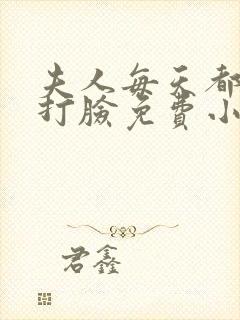 夫人每天都
打脸免費小
君鑫